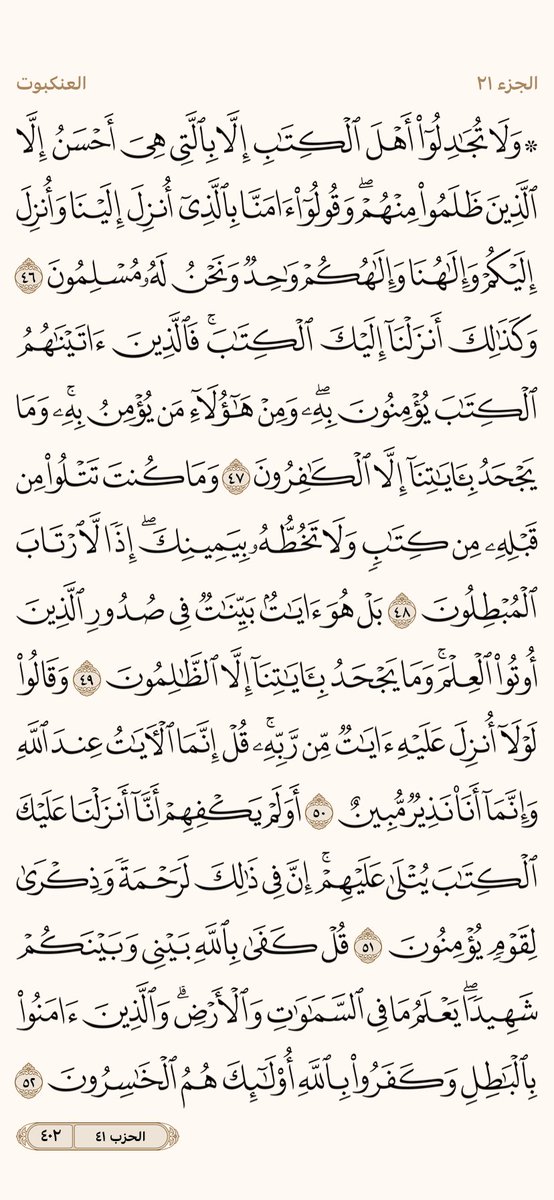 الجزء ٢١ العنكبوت
۞ وَلَا تُجَٰدِلُوٓا۟ أَهْلَ ٱلْكِتَٰبِ إِلَّا بِٱلَّتِى هِىَ أَحْسَنُ إِلَّا
ٱلَّذِينَ ظَلَمُوا۟ مِنْهُمْ ۖ وَقُولُوٓا۟ ءَامَنَّا بِٱلَّذِىٓ أُنزِلَ إِلَيْنَا وَأُنزِلَ
إِلَيْكُمْ وَإِلَٰهُنَا وَإِلَٰهُكُمْ وَٰحِدٌ وَنَحْنُ لَهُۥ مُسْلِمُونَ ٤٦
وَكَذَٰلِكَ أَنزَلْنَآ إِلَيْكَ ٱلْكِتَٰبَ ۚ فَٱلَّذِينَ ءَاتَيْنَٰهُمُ
ٱلْكِتَٰبَ يُؤْمِنُونَ بِهِۦ ۖ وَمِنْ هَٰٓؤُلَآءِ مَن يُؤْمِنُ بِهِۦ ۚ وَمَا
يَجْحَدُ بِـَٔايَٰتِنَآ إِلَّا ٱلْكَٰفِرُونَ ٤٧ وَمَا كُنتَ تَتْلُوا۟ مِن
قَبْلِهِۦ مِن كِتَٰبٍ وَلَا تَخُطُّهُۥ بِيَمِينِكَ ۖ إِذًا لَّٱرْتَابَ
ٱلْمُبْطِلُونَ ٤٨ بَلْ هُوَ ءَايَٰتٌۢ بَيِّنَٰتٌ فِى صُدُورِ ٱلَّذِينَ
أُوتُوا۟ ٱلْعِلْمَ ۚ وَمَا يَجْحَدُ بِـَٔايَٰتِنَآ إِلَّا ٱلظَّٰلِمُونَ ٤٩ وَقَالُوا۟
لَوْلَآ أُنزِلَ عَلَيْهِ ءَايَٰتٌ مِّن رَّبِّهِۦ ۚ قُلْ إِنَّمَا ٱلْـَٔايَٰتُ عِندَ ٱللَّهِ
وَإِنَّمَآ أَنَا۠ نَذِيرٌ مُّبِينٌ ٥٠ أَوَلَمْ يَكْفِهِمْ أَنَّآ أَنزَلْنَا عَلَيْكَ
ٱلْكِتَٰبَ يُتْلَىٰ عَلَيْهِمْ ۚ إِنَّ فِى ذَٰلِكَ لَرَحْمَةً وَذِكْرَىٰ
لِقَوْمٍ يُؤْمِنُونَ ٥١ قُلْ كَفَىٰ بِٱللَّهِ بَيْنِى وَبَيْنَكُمْ
شَهِيدًا ۖ يَعْلَمُ مَا فِى ٱلسَّمَٰوَٰتِ وَٱلْأَرْضِ ۗ وَٱلَّذِينَ ءَامَنُوا۟
بِٱلْبَٰطِلِ وَكَفَرُوا۟ بِٱللَّهِ أُو۟لَٰٓئِكَ هُمُ ٱلْخَٰسِرُونَ ٥٢
الحزب ٤١ ٤٠٢